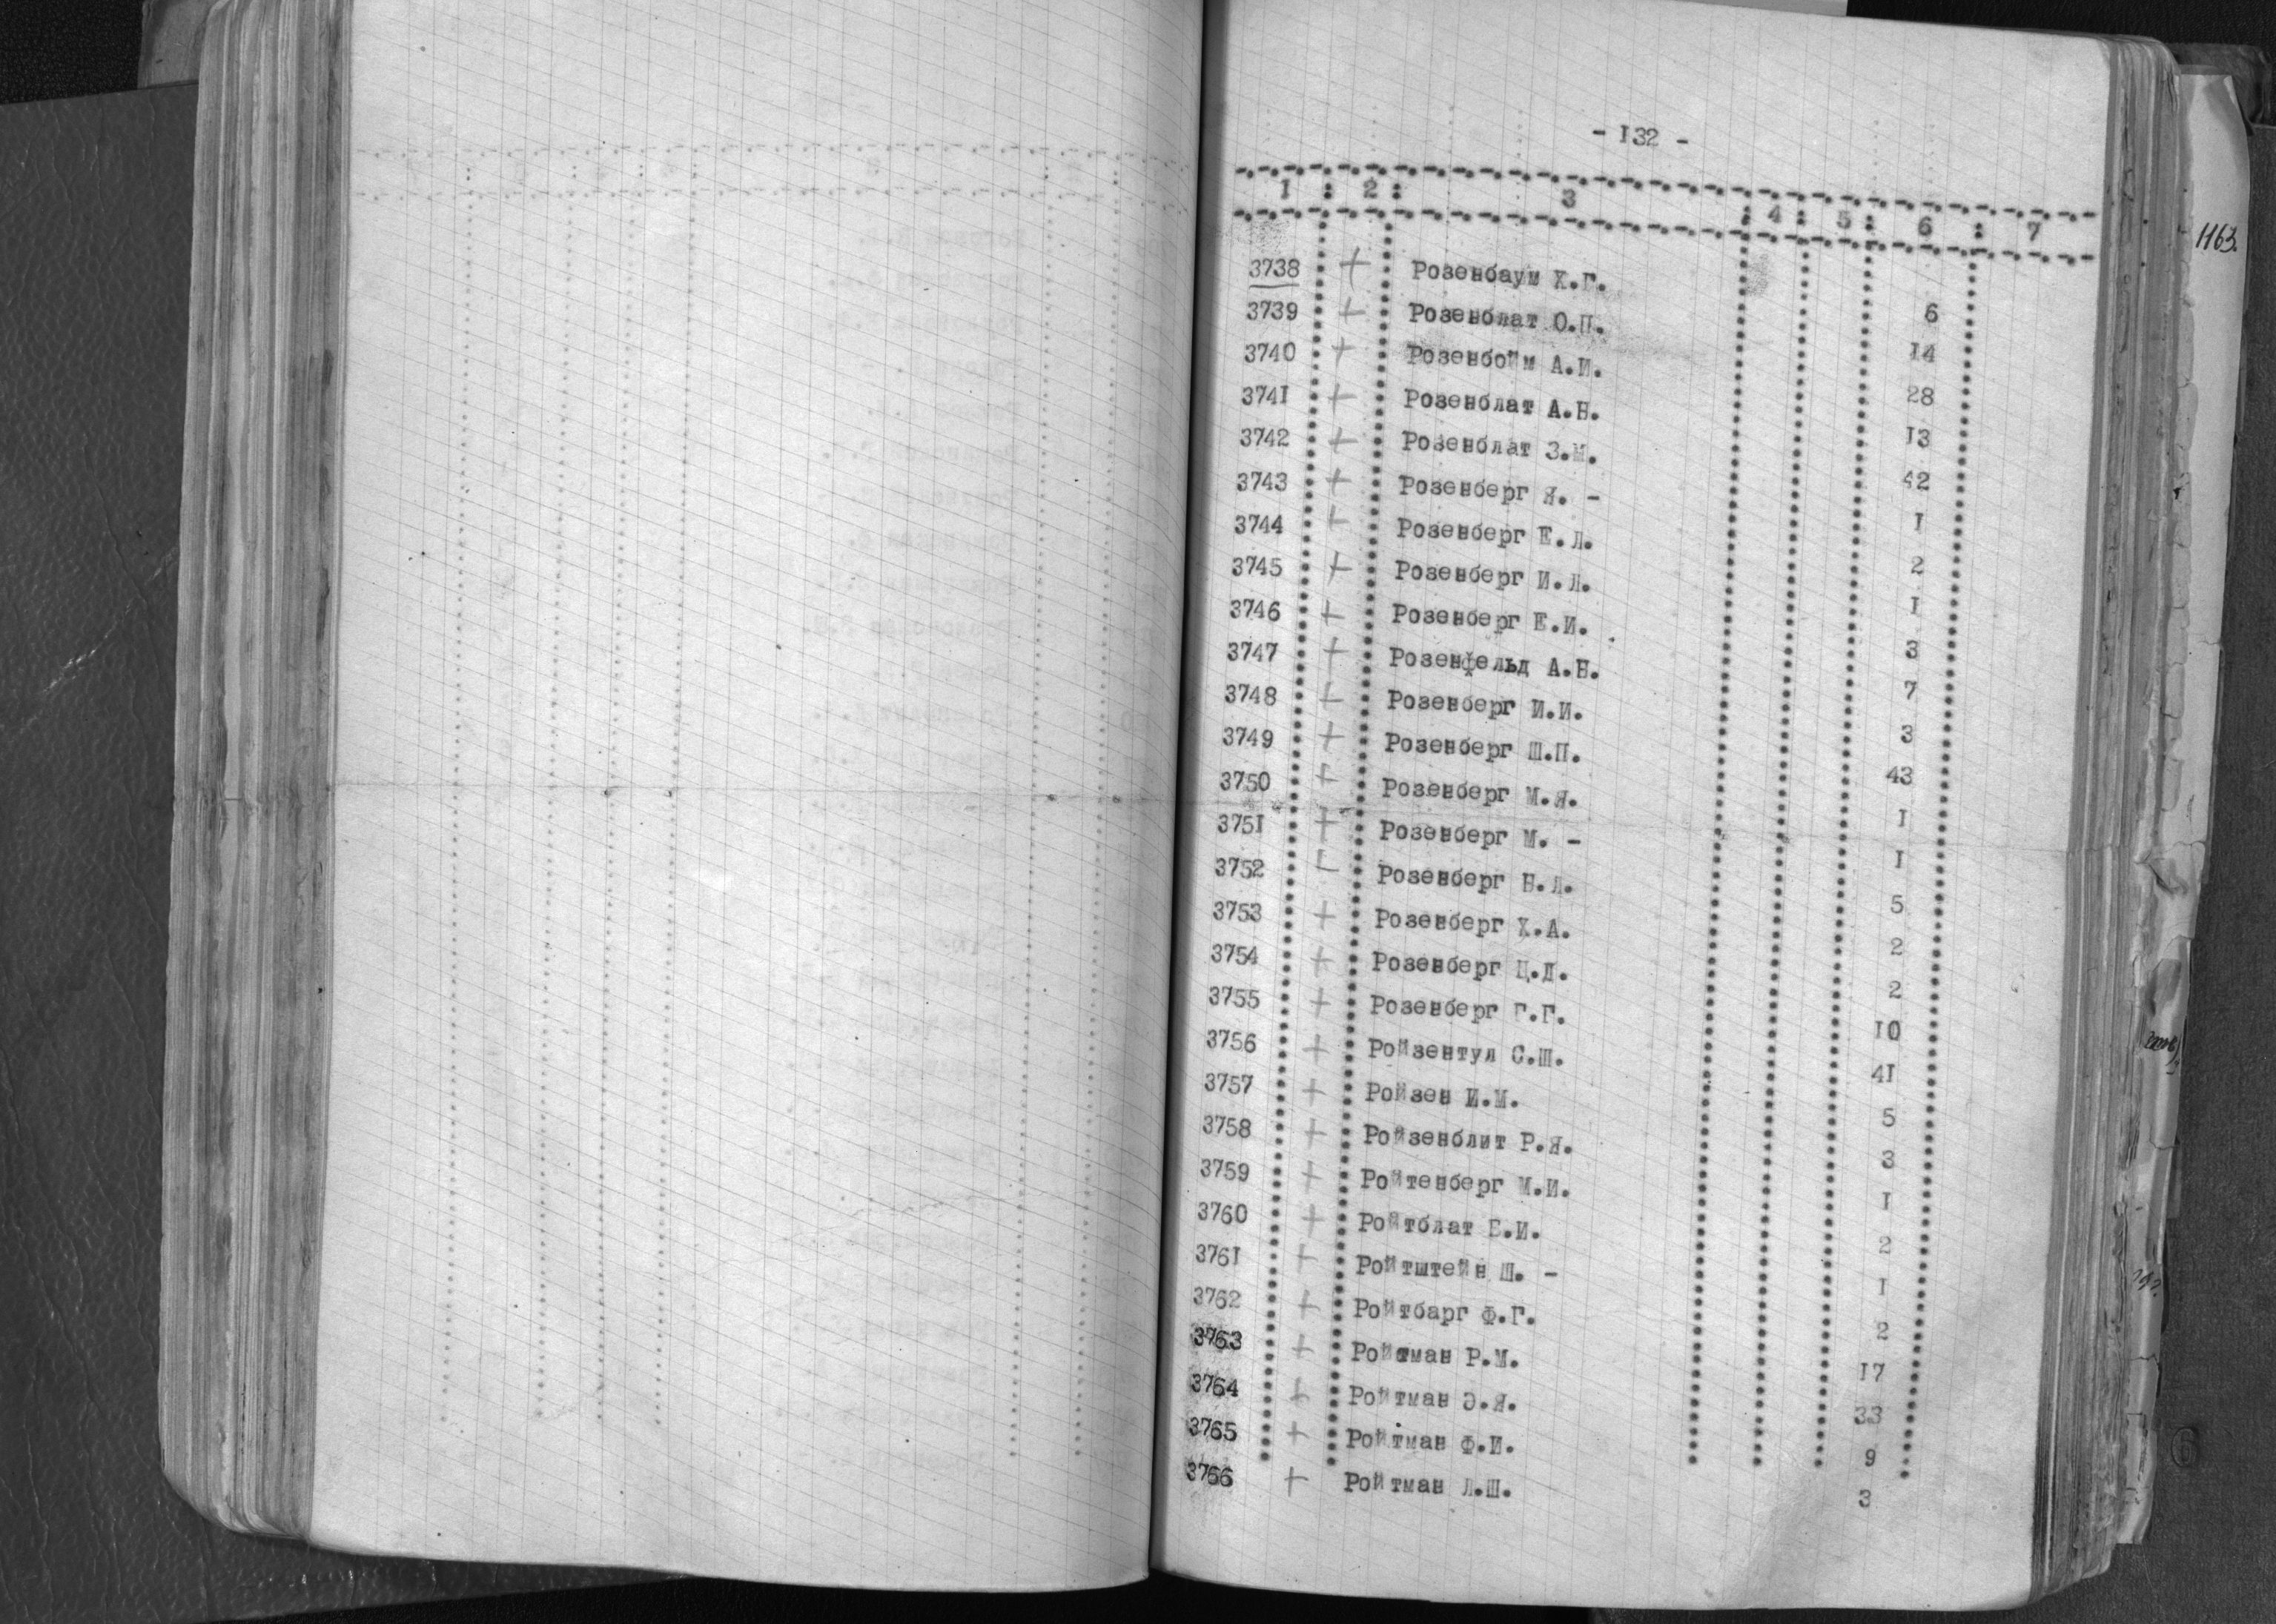 - 132 -
1 : 2 : 3 : 4 : 5 : 6 : 7
1163.
3738 + Розенбаум Х.Г. 6
3739 + Розенблат О.П. 14
3740 + Розенбойм А.И. 28
3741 + Розенблат А.Н. 13
3742 + Розенблат З.М. 42
3743 + Розенберг Я. - 1
3744 + Розенберг Е.Л. 2
3745 + Розенберг И.Л. 1
3746 + Розенберг Е.И. 3
3747 + Розенфельд А.Н. 7
3748 + Розенберг И.И. 3
3749 + Розенберг Ш.П. 43
3750 + Розенберг М.Я. 1
3751 + Розенберг М. - 1
3752 + Розенберг Н.Л. 5
3753 + Розенберг Х.А. 2
3754 + Розенберг Ц.Д. 2
3755 + Розенберг Г.Г. 10
3756 + Ройзентул С.Ш. 41
3757 + Ройзен И.М. 5
3758 + Ройзенблит Р.Я. 3
3759 + Ройтенберг М.И. 1
3760 + Ройтблат Б.И. 2
3761 + Ройтштейн Ш. - 1
3762 + Ройтбарг Ф.Г. 2
3763 + Ройтман Р.М. 17
3764 + Ройтман Э.Я. 33
3765 + Ройтман Ф.И. 9
3766 + Ройтман Л.Ш. 3